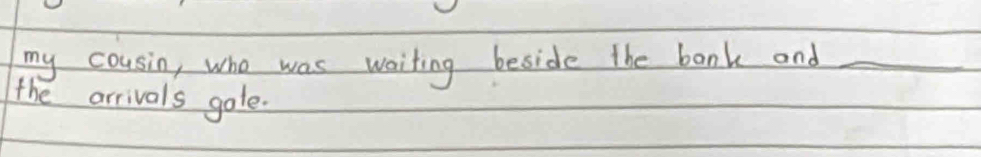 my cousin, who was waiting beside the bank and ____
the arrivals gate.